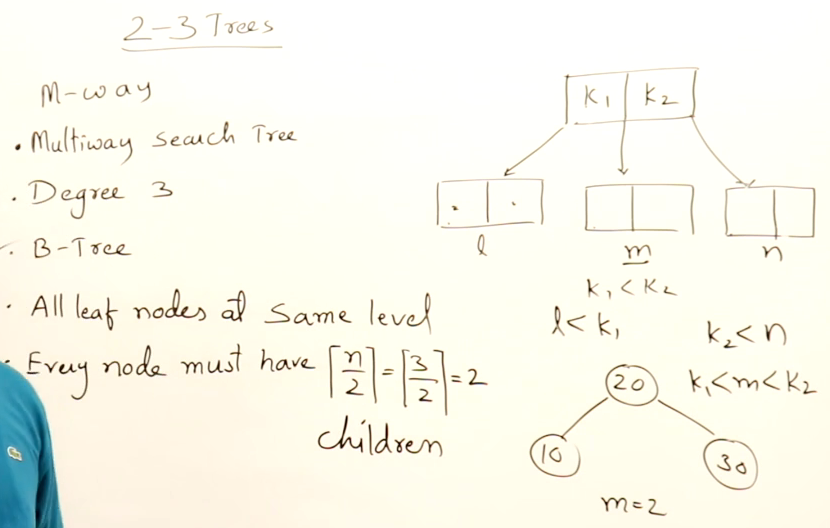 2-3 Trees
M-way
• Multiway Search Tree
• Degree 3
• B-Tree
• All leaf nodes at same level
• Every node must have ⌈n/2⌉=⌈3/2⌉=2
children
k₁ k₂
l m n
k₁<k₂
l<k₁ k₂<n
k₁<m<k₂
20
10 30
m=2